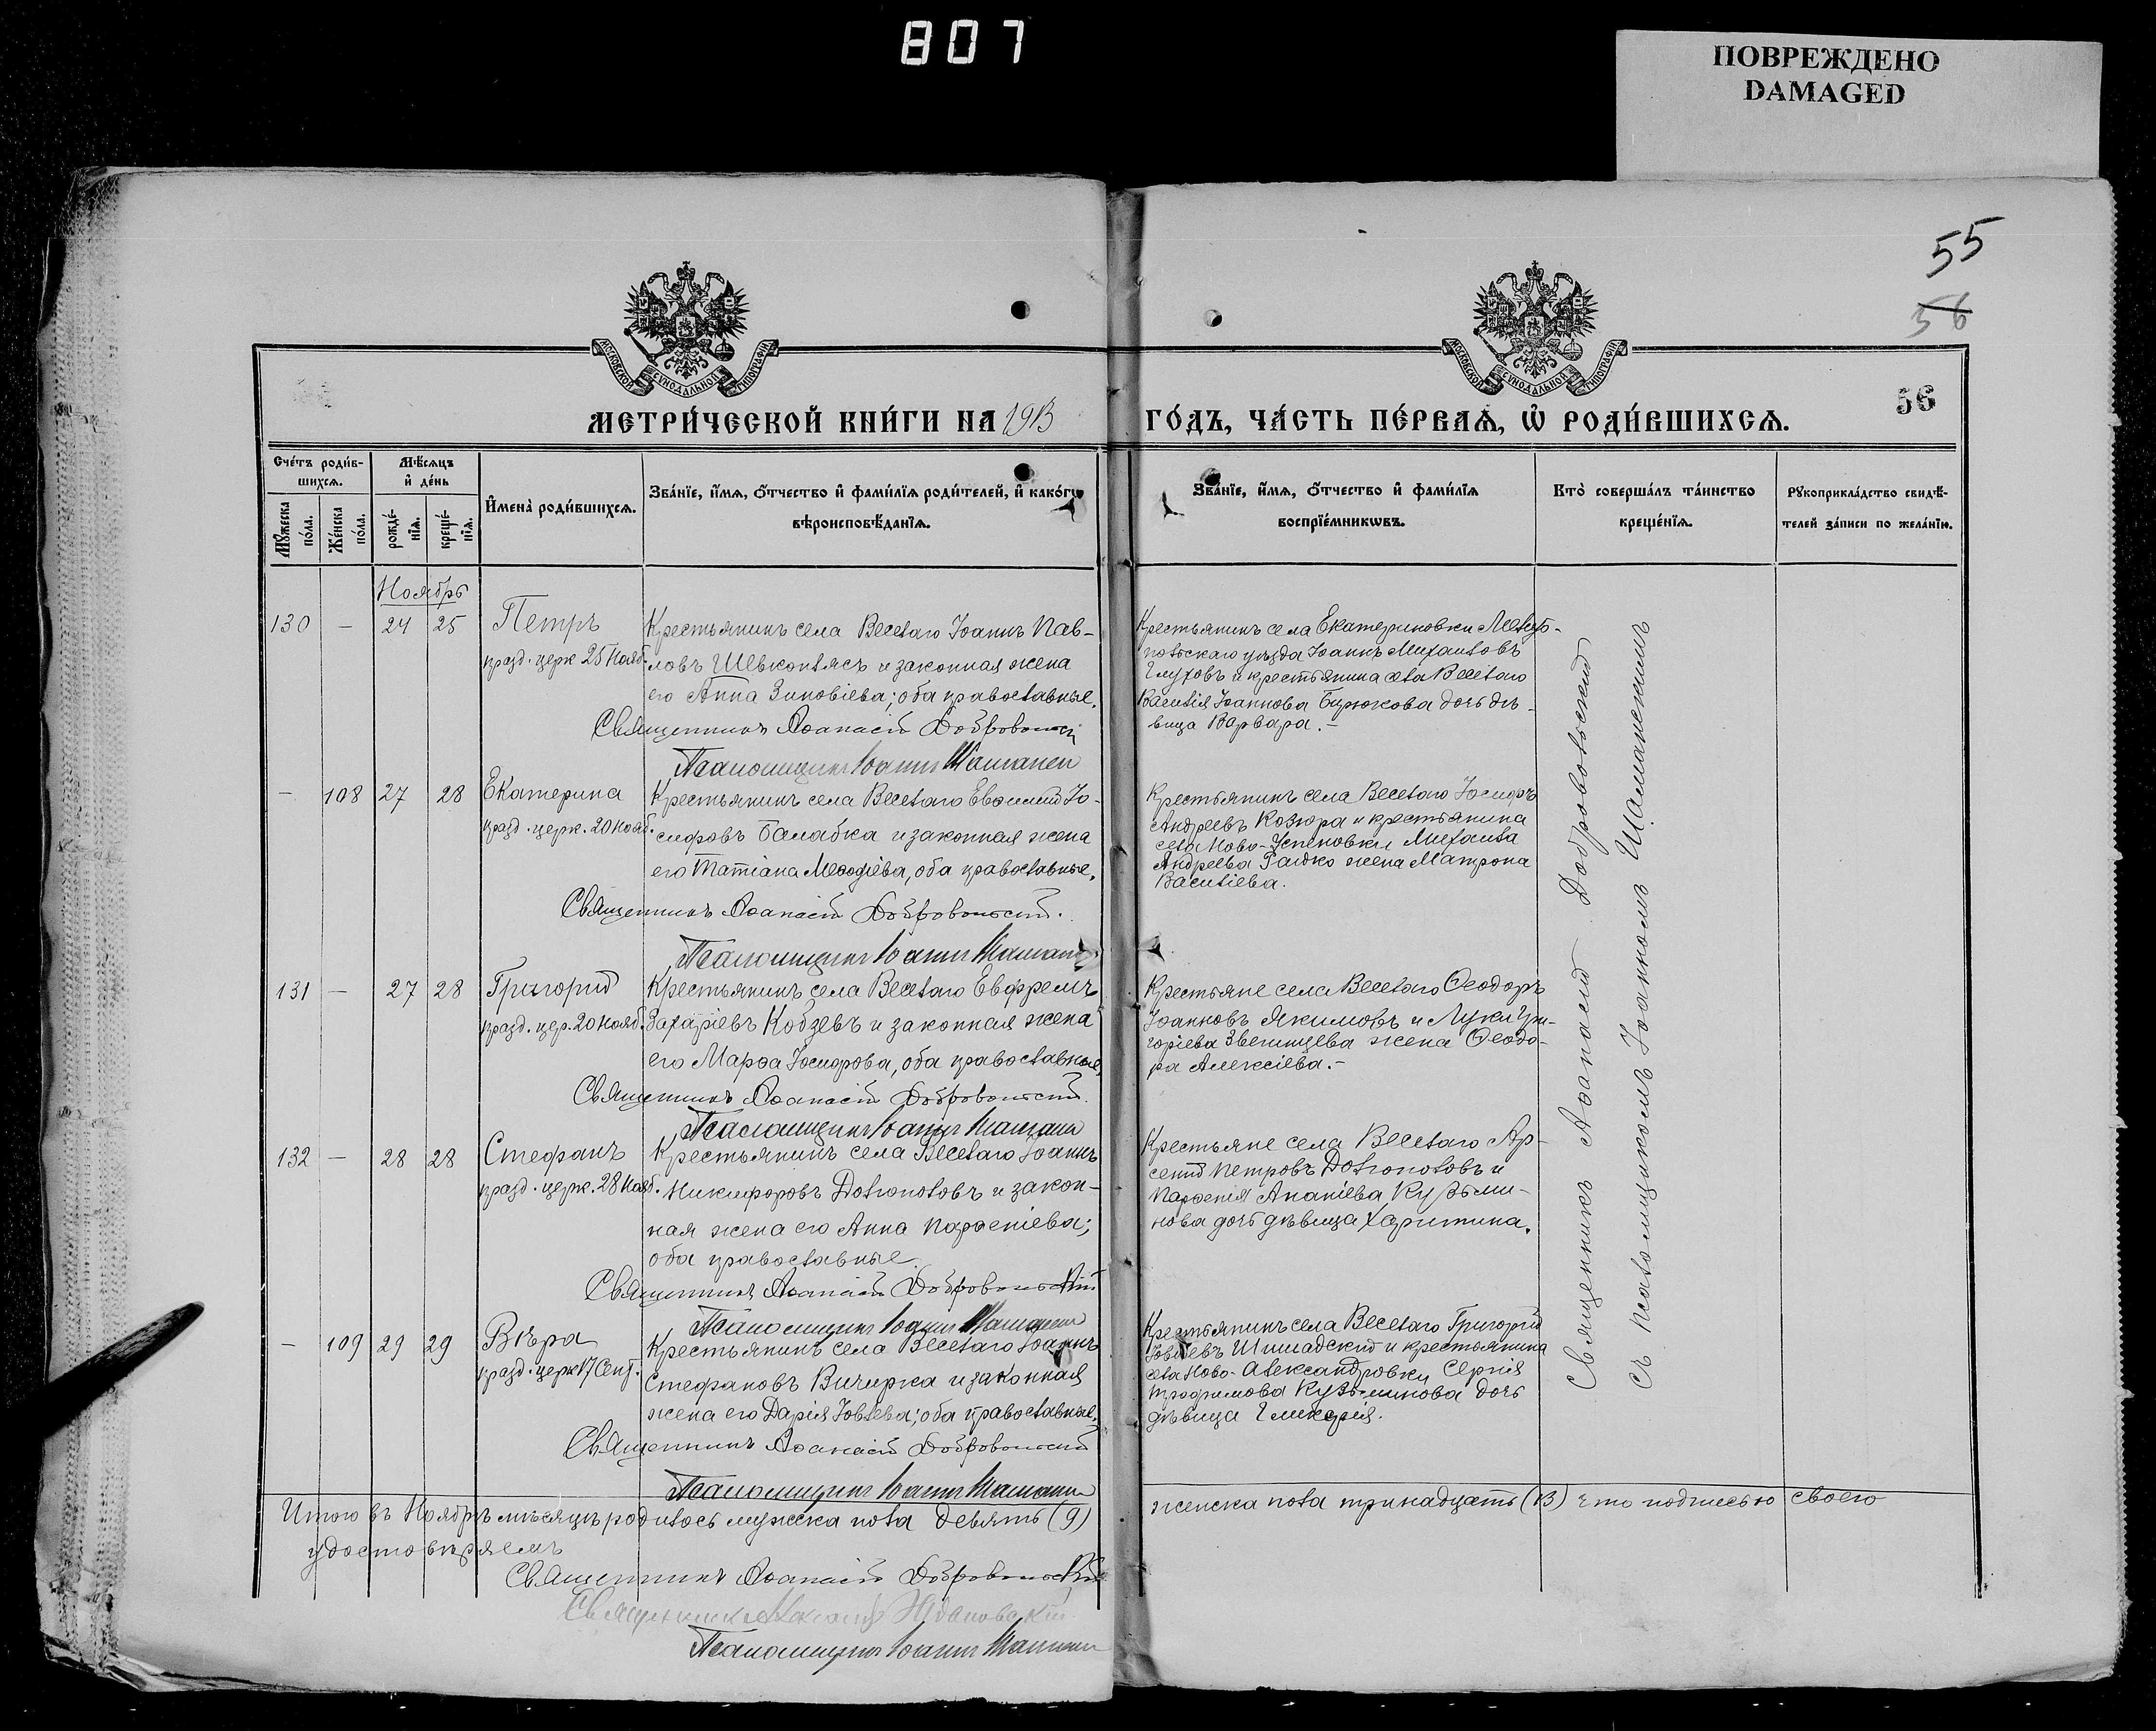 807
ПОВРЕЖДЕНО
DAMAGED
55
56
56
МОСКОВСКОЙ СѴНОДАЛЬНОЙ ТИПОГРАФІИ
МОСКОВСКОЙ СѴНОДАЛЬНОЙ ТИПОГРАФІИ
МЕТРИ́ЧЕСКОЙ КНИ́ГИ НА 1913 ГО́ДЪ, ЧА́СТЬ ПЕ́РВАѦ, Ѽ РОДИ́ВШИХСѦ.
Сче́тъ роди́в-
шихсѧ.
Мꙋ́жеска по́ла.
Же́нска по́ла.
Мѣ́сѧцъ
и҆ де́нь
рожде́-
нїѧ.
креще́-
нїѧ.
И҆мена̀ роди́вшихсѧ.
Зва́нїе, и҆́мѧ, ѻ҆́тчество и҆ фами́лїѧ роди́телей, и҆ како́гѡ
вѣроисповѣ́данїѧ.
Зва́нїе, и҆́мѧ, ѻ҆́тчество и҆ фами́лїѧ
воспрїе́мникѡвъ.
Кто̀ соверша́лъ та́инство
креще́нїѧ.
Рꙋкоприкла́дство свидѣ́-
телей за́писи по жела́нїю.
Ноябрь
130 — 24 25 Петръ
празд. церк 25 Нояб.
Крестьянинъ села Веселаго Іоаннъ Пав-
ловъ Шевкоплясъ и законная жена
его Анна Зиновіева; оба православные.
Священникъ Аѳанасій Добровольскій
Псаломщикъ Іоаннъ Шаманскій
Крестьянинъ села Екатериновки Мелито-
польскаго уѣзда Іоаннъ Михаиловъ
Глуховъ и крестьянина села Веселаго
Василія Іоаннова Бирюкова дочь дѣ-
вица Варвара.—
— 108 27 28 Екатерина
празд. церк. 20 Нояб.
Крестьянинъ села Веселаго Евѳимій Іо-
сифовъ Балабка и законная жена
его Татіана Меѳодіева, оба православные.
Священникъ Аѳанасій Добровольскій.
Псаломщикъ Іоаннъ Шаманскій
Крестьянинъ села Веселаго Іосифъ
Андреевъ Козюра и крестьянина
села Ново-Успеновки Михаила
Андреева Гладко жена Матрона
Василіева.
131 — 27 28 Григорій
празд. цер. 20 Нояб.
Крестьянинъ села Веселаго Евфремъ
Захаріевъ Кобзевъ и законная жена
его Марѳа Іосифова, оба православные.
Священникъ Аѳанасій Добровольскій.
Псаломщикъ Іоаннъ Шаманскій
Крестьяне села Веселаго Ѳеодоръ
Іоанновъ Якимовъ и Луки Гри-
горіева Звегинцева жена Ѳеодо-
ра Алексіева.—
132 — 28 28 Стефанъ
празд. церк. 28 Нояб.
Крестьянинъ села Веселаго Іоаннъ
Никифоровъ Долгополовъ и закон-
ная жена его Анна Парѳеніева;
оба православные.
Священникъ Аѳанасій Добровольскій
Псаломщикъ Іоаннъ Шаманскій
Крестьяне села Веселаго Ар-
сеній Петровъ Долгополовъ и
Парѳенія Ананіева Кузьми-
нова дочь дѣвица Харитина.
— 109 29 29 Вѣра
празд. церк 17 Сент.
Крестьянинъ села Веселаго Іоаннъ
Стефановъ Вичирка и законная
жена его Дарія Іовлева; оба православные.
Священникъ Аѳанасій Добровольскій
Псаломщикъ Іоаннъ Шаманскій
Крестьянинъ села Веселаго Григорій
Іовлевъ и крестьянина
села Ново-Александровки Сергія
Трофимова Кузьминова дочь
дѣвица Гликерія.
Священникъ Аѳанасій Добровольскій
съ псаломщикомъ Іоанномъ Шаманскимъ
Итого въ Ноябрѣ мѣсяцѣ родилось мужска пола девять (9) женска пола тринадцать (13) что подписью своею
удостовѣряемъ
Священникъ Аѳанасій Добровольскій
Священникъ
Псаломщикъ Іоаннъ Шаманскій